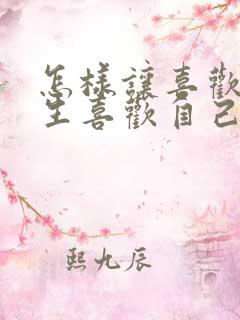 怎樣讓喜歡
生喜歡自己
熙九辰